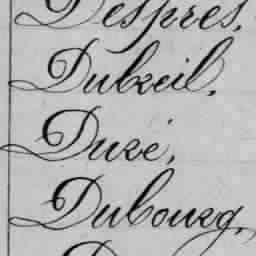 Despres,
Dubreil,
Duré,
Dubourg,